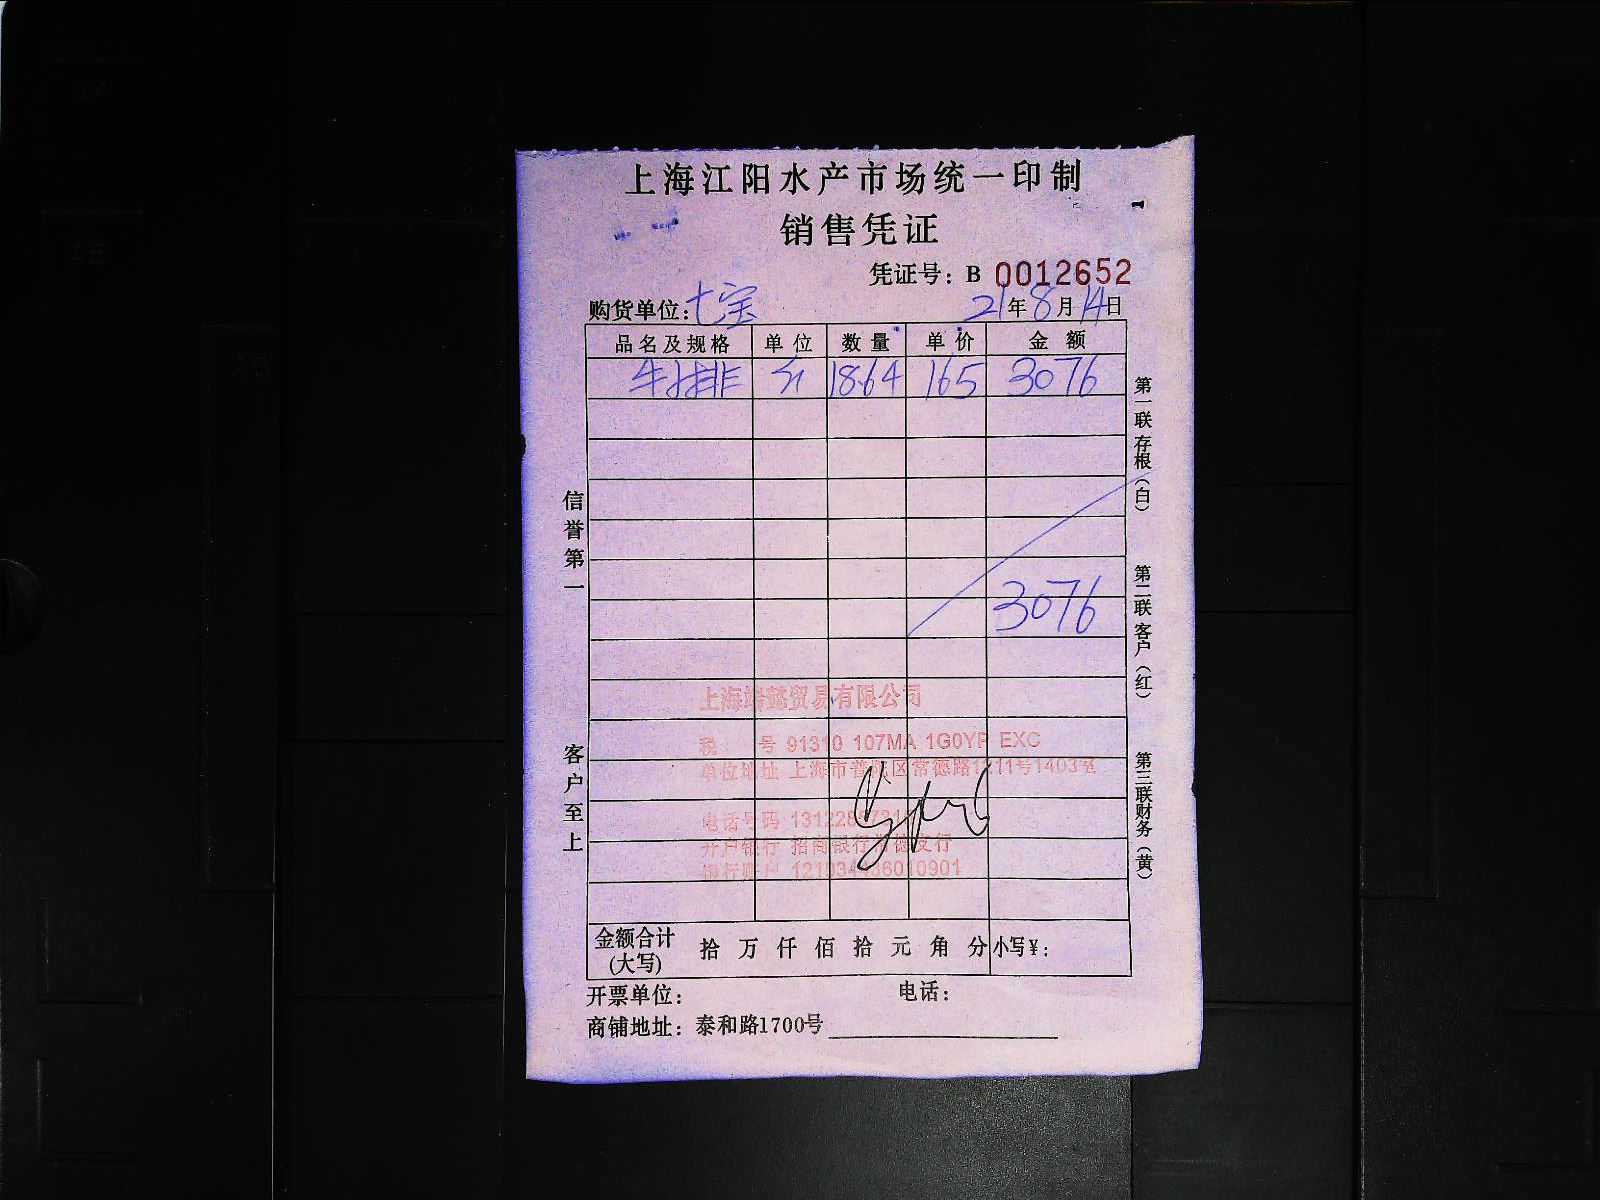 上海江阳水产市场统一印制
销售凭证
凭证号：B 0012652
购货单位：七宝 21年8月14日
品名及规格 单位 数量 单价 金额
牛排 斤 18.64 165 3076
3076
信誉第一
客户至上
第一联存根（白）
第二联客户（红）
第三联财务（黄）
上海端懿贸易有限公司
税 号 91310 107MA 1G0YF EXC
单位地址 上海市普陀区常德路1211号1403室
电话号码
开户银行 招商银行常德支行
银行账户
金额合计(大写) 拾 万 仟 佰 拾 元 角 分 小写¥：
开票单位： 电话：
商铺地址：泰和路1700号